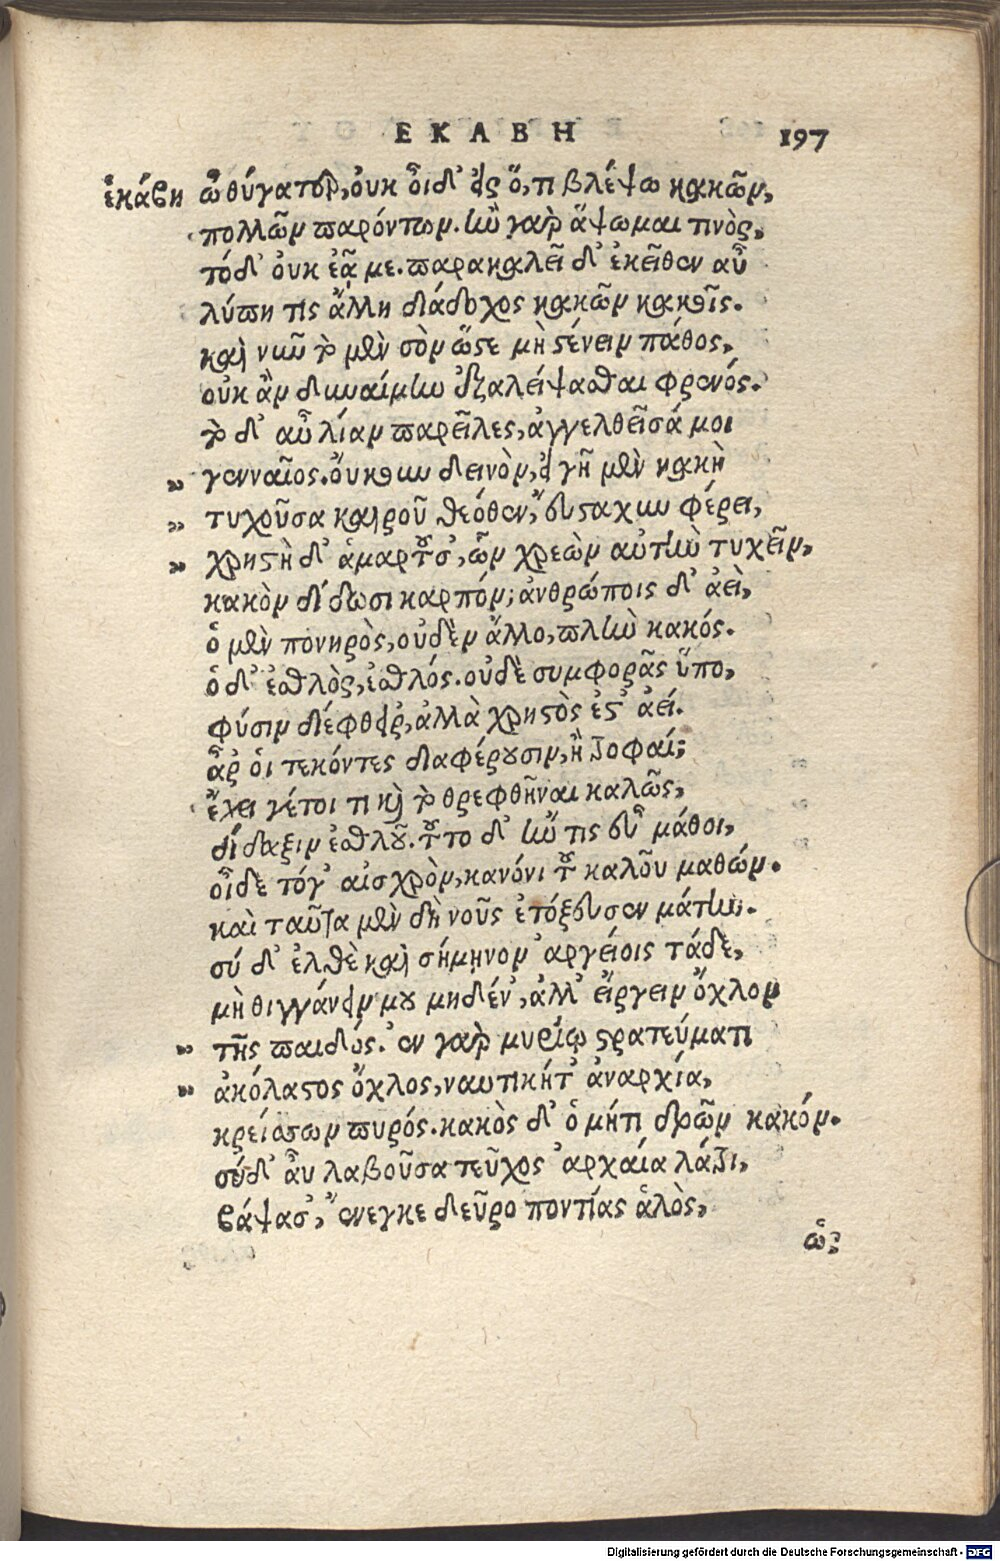 ΕΚΑΒΗ 197
ἑκάβη ὦ θύγατερ, οὐκ οἶδ' εἰς ὅ, τι βλέψω κακῶν,
πολλῶν παρόντων. ἢν γὰρ ἅψωμαι τινὸς,
τόδ' οὐκ ἐᾷ με. παρακαλεῖ δ' ἐκεῖθεν αὖ
λύπη τὶς ἄλλη διάδοχος κακῶν κακοῖς.
καὶ νῦν τὸ μὲν σὸν ὥστε μὴ στένειν πάθος,
οὐκ ἂν δυναίμην ἐξαλείψασθαι φρενός.
τὸ δ' αὖ λίαν παρεῖλες, ἀγγελθεῖσά μοι
„ γενναῖος. οὔκουν δεινὸν, εἰ γῆ μὲν κακὴ
„ τυχοῦσα καιροῦ θεόθεν, εὖ σταχυν φέρει,
„ χρηστὴ δ' ἁμαρτοῦσ', ὧν χρεὼν αὐτὴν τυχεῖν,
κακὸν δίδωσι καρπόν; ἀνθρώποις δ' ἀεὶ,
ὁ μὲν πονηρὸς, οὐδὲν ἄλλο, πλὴν κακός.
ὁ δ' ἐσθλὸς, ἐσθλός. οὐδὲ συμφορᾶς ὕπο,
φύσιν διέφθειρ', ἀλλὰ χρηστὸς ἐστ' ἀεί.
ἆρ' οἱ τεκόντες διαφέρουσιν, ἢ τροφαί;
ἔχει γέτοι τι καὶ τὸ θρεφθῆναι καλῶς,
δίδαξιν ἐσθλοῦ. τοῦτο δ' ἤν τις εὖ μάθοι,
οἶδε τόγ' αἰσχρὸν, κανόνι τοῦ καλοῦ μαθών.
καὶ ταῦτα μὲν δὴ νοῦς ἐτόξευσεν μάτην.
σύ δ' ἐλθὲ καὶ σήμηνον ἀργείοις τάδε,
μὴ θιγγάνειν μου μηδέν', ἀλλ' εἴργειν ὄχλον
„ τῆς παιδός. ἐν γὰρ μυρίῳ στρατεύματι
„ ἀκόλαστος ὄχλος, ναυτικήτ' ἀναρχία,
κρείσσων πυρός. κακὸς δ' ὁ μήτι δρῶν κακόν.
σύδ' αὖ λαβοῦσα τεῦχος ἀρχαία λάτρι,
βάψασ', ἔνεγκε δεῦρο ποντίας ἁλὸς,
ὡς
Digitalisierung gefördert durch die Deutsche Forschungsgemeinschaft - DFG